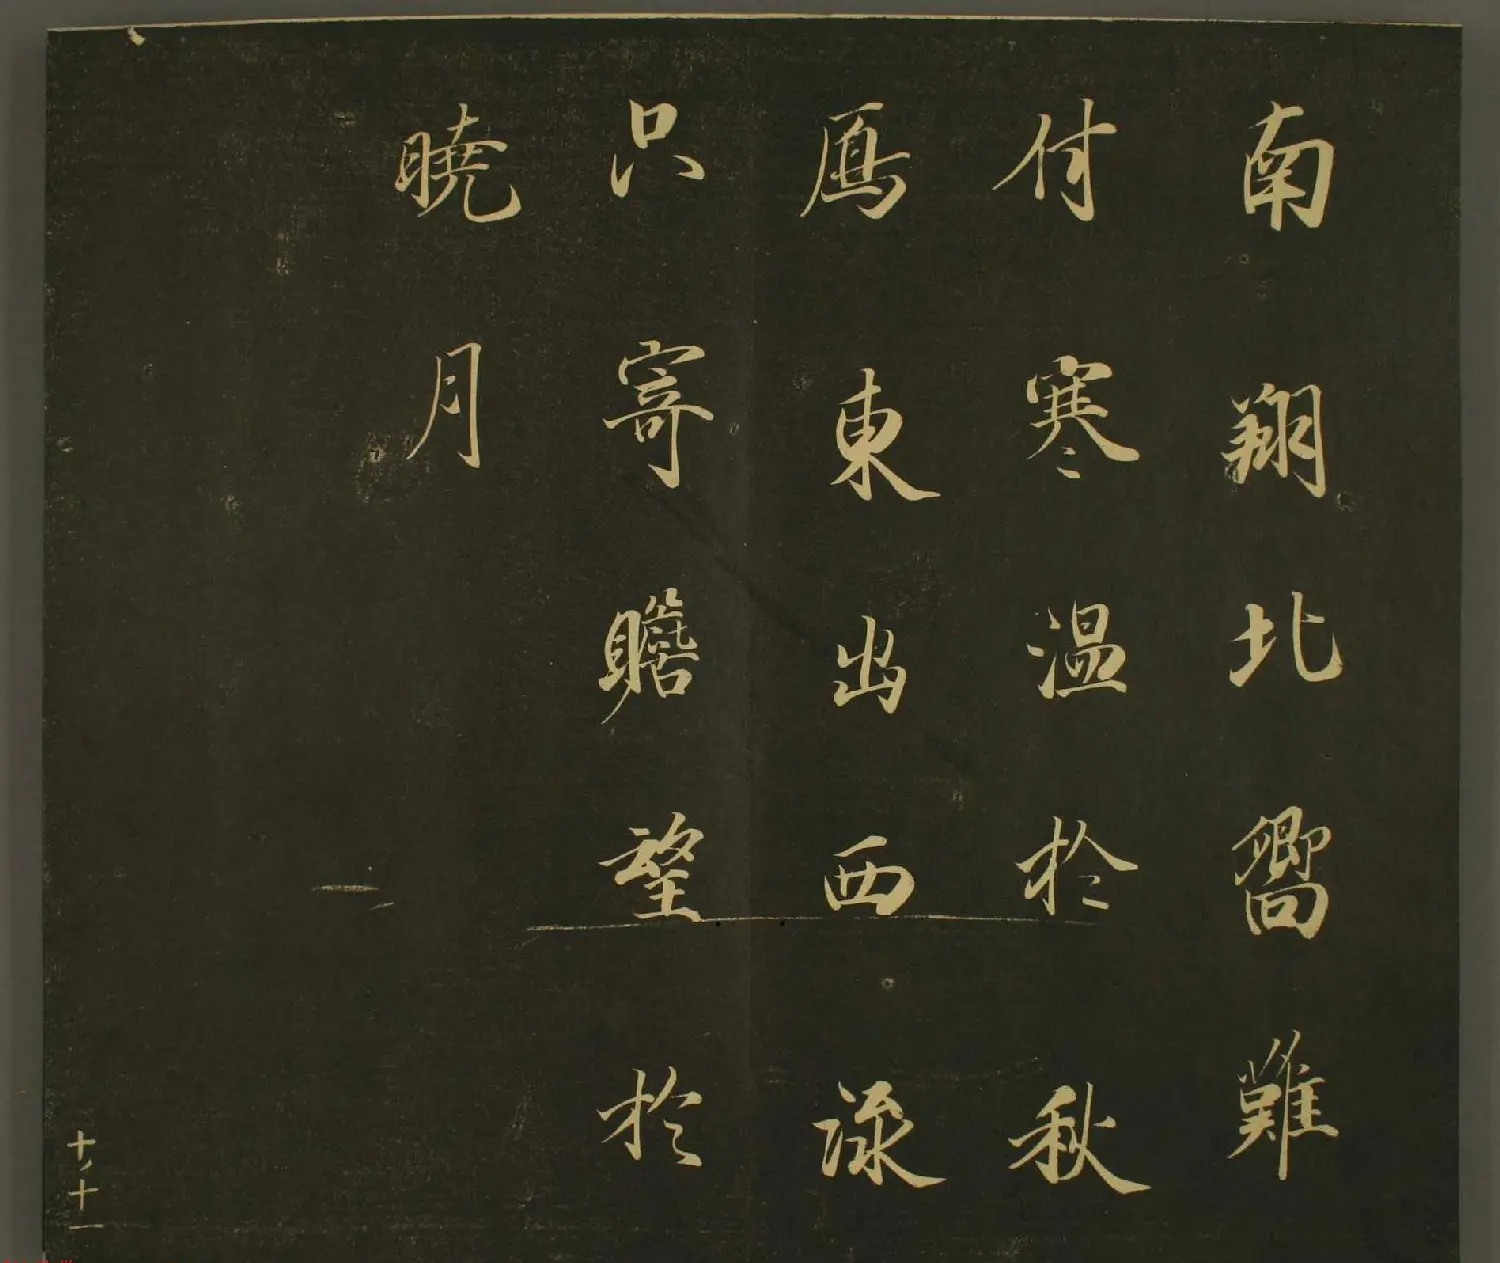 南翔北嚮難
付寒溫於秋
鴈東出西流
只寄瞻望於
曉月
十ノ十一